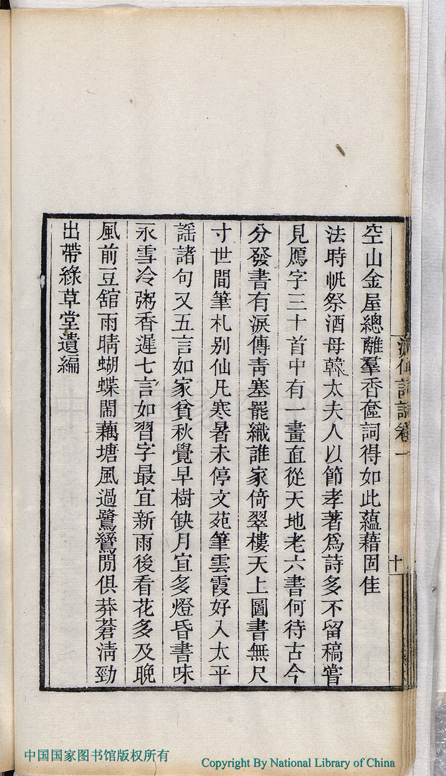 空山金屋總離羣香奩詞得如此蘊藉固佳
法時帆祭酒母韓太夫人以節孝著爲詩多不留稿嘗
見鴈字三十首中有一畫直從天地老六書何待古今
分發書有淚傳靑塞罷織誰家倚翠樓天上圖書無尺
寸世間筆札別仙凡寒暑未停文苑筆雲霞好入太平
謠諸句又五言如家貧秋覺早樹缺月宜多燈昏書味
永雪冷粥香遲七言如習字最宜新雨後看花多及晚
風前豆舘雨晴蝴蝶鬧藕塘風過鷺鷥閒俱莽蒼淸勁
出帶綠草堂遺編
詩話卷一
十
中国国家图书馆版权所有
Copyright By National Library of China